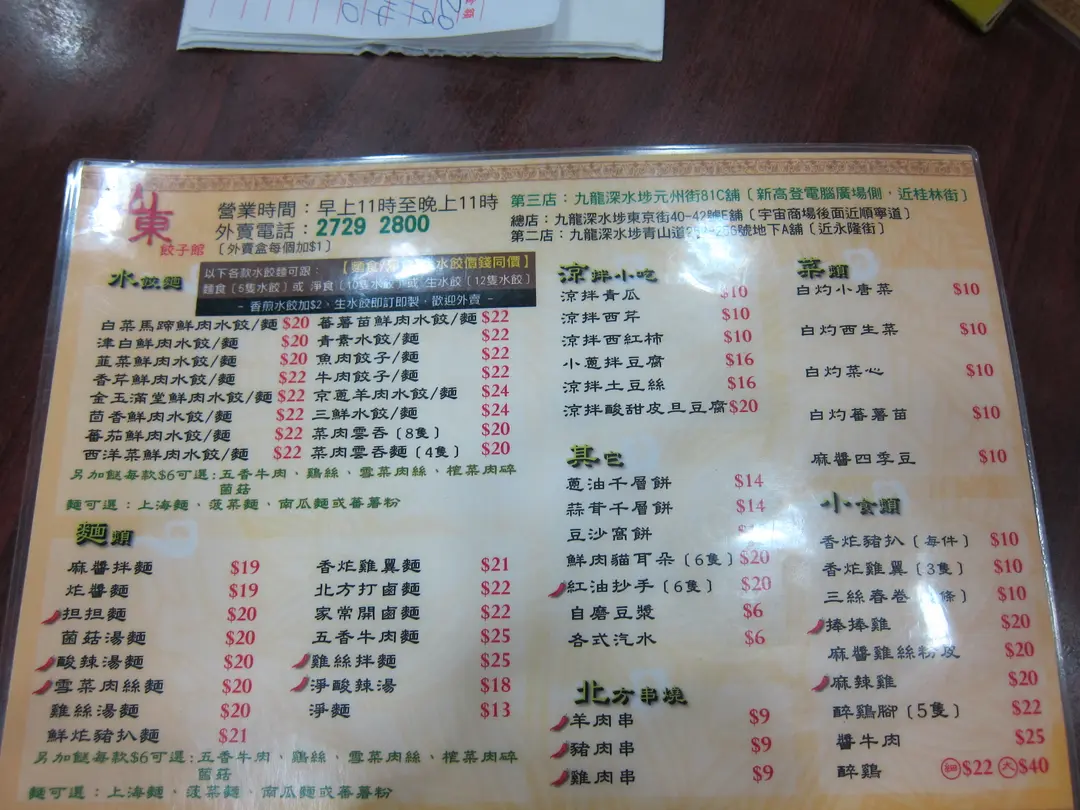 山東
餃子館
營業時間：早上11時至晚上11時
外賣電話：2729 2800
〔外賣盒每個加$1〕
第三店：九龍深水埗元州街81C舖〔新高登電腦廣場側，近桂林街〕
總店：九龍深水埗東京街40-42號E舖〔宇宙商場後面近順寧道〕
第二店：九龍深水埗青山道25 號地下A舖〔近永隆街〕
水餃麵
以下各款水餃麵可跟：
水餃價錢同價】
麵食〔5隻水餃〕或 淨食〔10隻水餃〕或 生水餃〔12隻水餃〕
- 香煎水餃加$2、生水餃即訂即製，歡迎外賣 -
白菜馬蹄鮮肉水餃/麵 $20
津白鮮肉水餃/麵 $20
韮菜鮮肉水餃/麵 $20
香芹鮮肉水餃/麵 $22
金玉滿堂鮮肉水餃/麵 $22
茴香鮮肉水餃/麵 $22
番茄鮮肉水餃/麵 $22
西洋菜鮮肉水餃/麵 $22
番薯苗鮮肉水餃/麵 $22
青素水餃/麵 $22
魚肉餃子/麵 $22
牛肉餃子/麵 $22
京蔥羊肉水餃/麵 $24
三鮮水餃/麵 $24
菜肉雲吞〔8隻〕 $20
菜肉雲吞麵〔4隻〕 $20
另加餸每款$6可選：五香牛肉、鷄絲、雪菜肉絲、榨菜肉碎
菌菇
麵可選：上海麵、菠菜麵、南瓜麵或蕃薯粉
麵類
麻醬拌麵 $19
炸醬麵 $19
担担麵 $20
菌菇湯麵 $20
酸辣湯麵 $20
雪菜肉絲麵 $20
雞絲湯麵 $20
鮮炸豬扒麵 $21
香炸雞翼麵 $21
北方打鹵麵 $22
家常開鹵麵 $22
五香牛肉麵 $25
雞絲拌麵 $25
淨酸辣湯 $18
淨麵 $13
另加餸每款$6可選：五香牛肉、鷄絲、雪菜肉絲、榨菜肉碎
菌菇
麵可選：上海麵、菠菜麵、南瓜麵或蕃薯粉
涼拌小吃
涼拌青瓜 $10
涼拌西芹 $10
涼拌西紅柿 $10
小蔥拌豆腐 $16
涼拌土豆絲 $16
涼拌酸甜皮旦豆腐 $20
其它
蔥油千層餅 $14
蒜茸千層餅 $14
豆沙窩餅
鮮肉貓耳朵〔6隻〕 $20
紅油抄手〔6隻〕 $20
自磨豆漿 $6
各式汽水 $6
北方串燒
羊肉串 $9
豬肉串 $9
雞肉串 $9
菜類
白灼小唐菜 $10
白灼西生菜 $10
白灼菜心 $10
白灼番薯苗 $10
麻醬四季豆 $10
小食類
香炸豬扒〔每件〕 $10
香炸雞翼〔3隻〕 $10
三絲春卷〔 條〕 $10
捧捧雞 $20
麻醬雞絲粉皮 $20
麻辣雞 $20
醉鷄腳〔5隻〕 $22
醬牛肉 $25
醉鷄 細$22 大$40